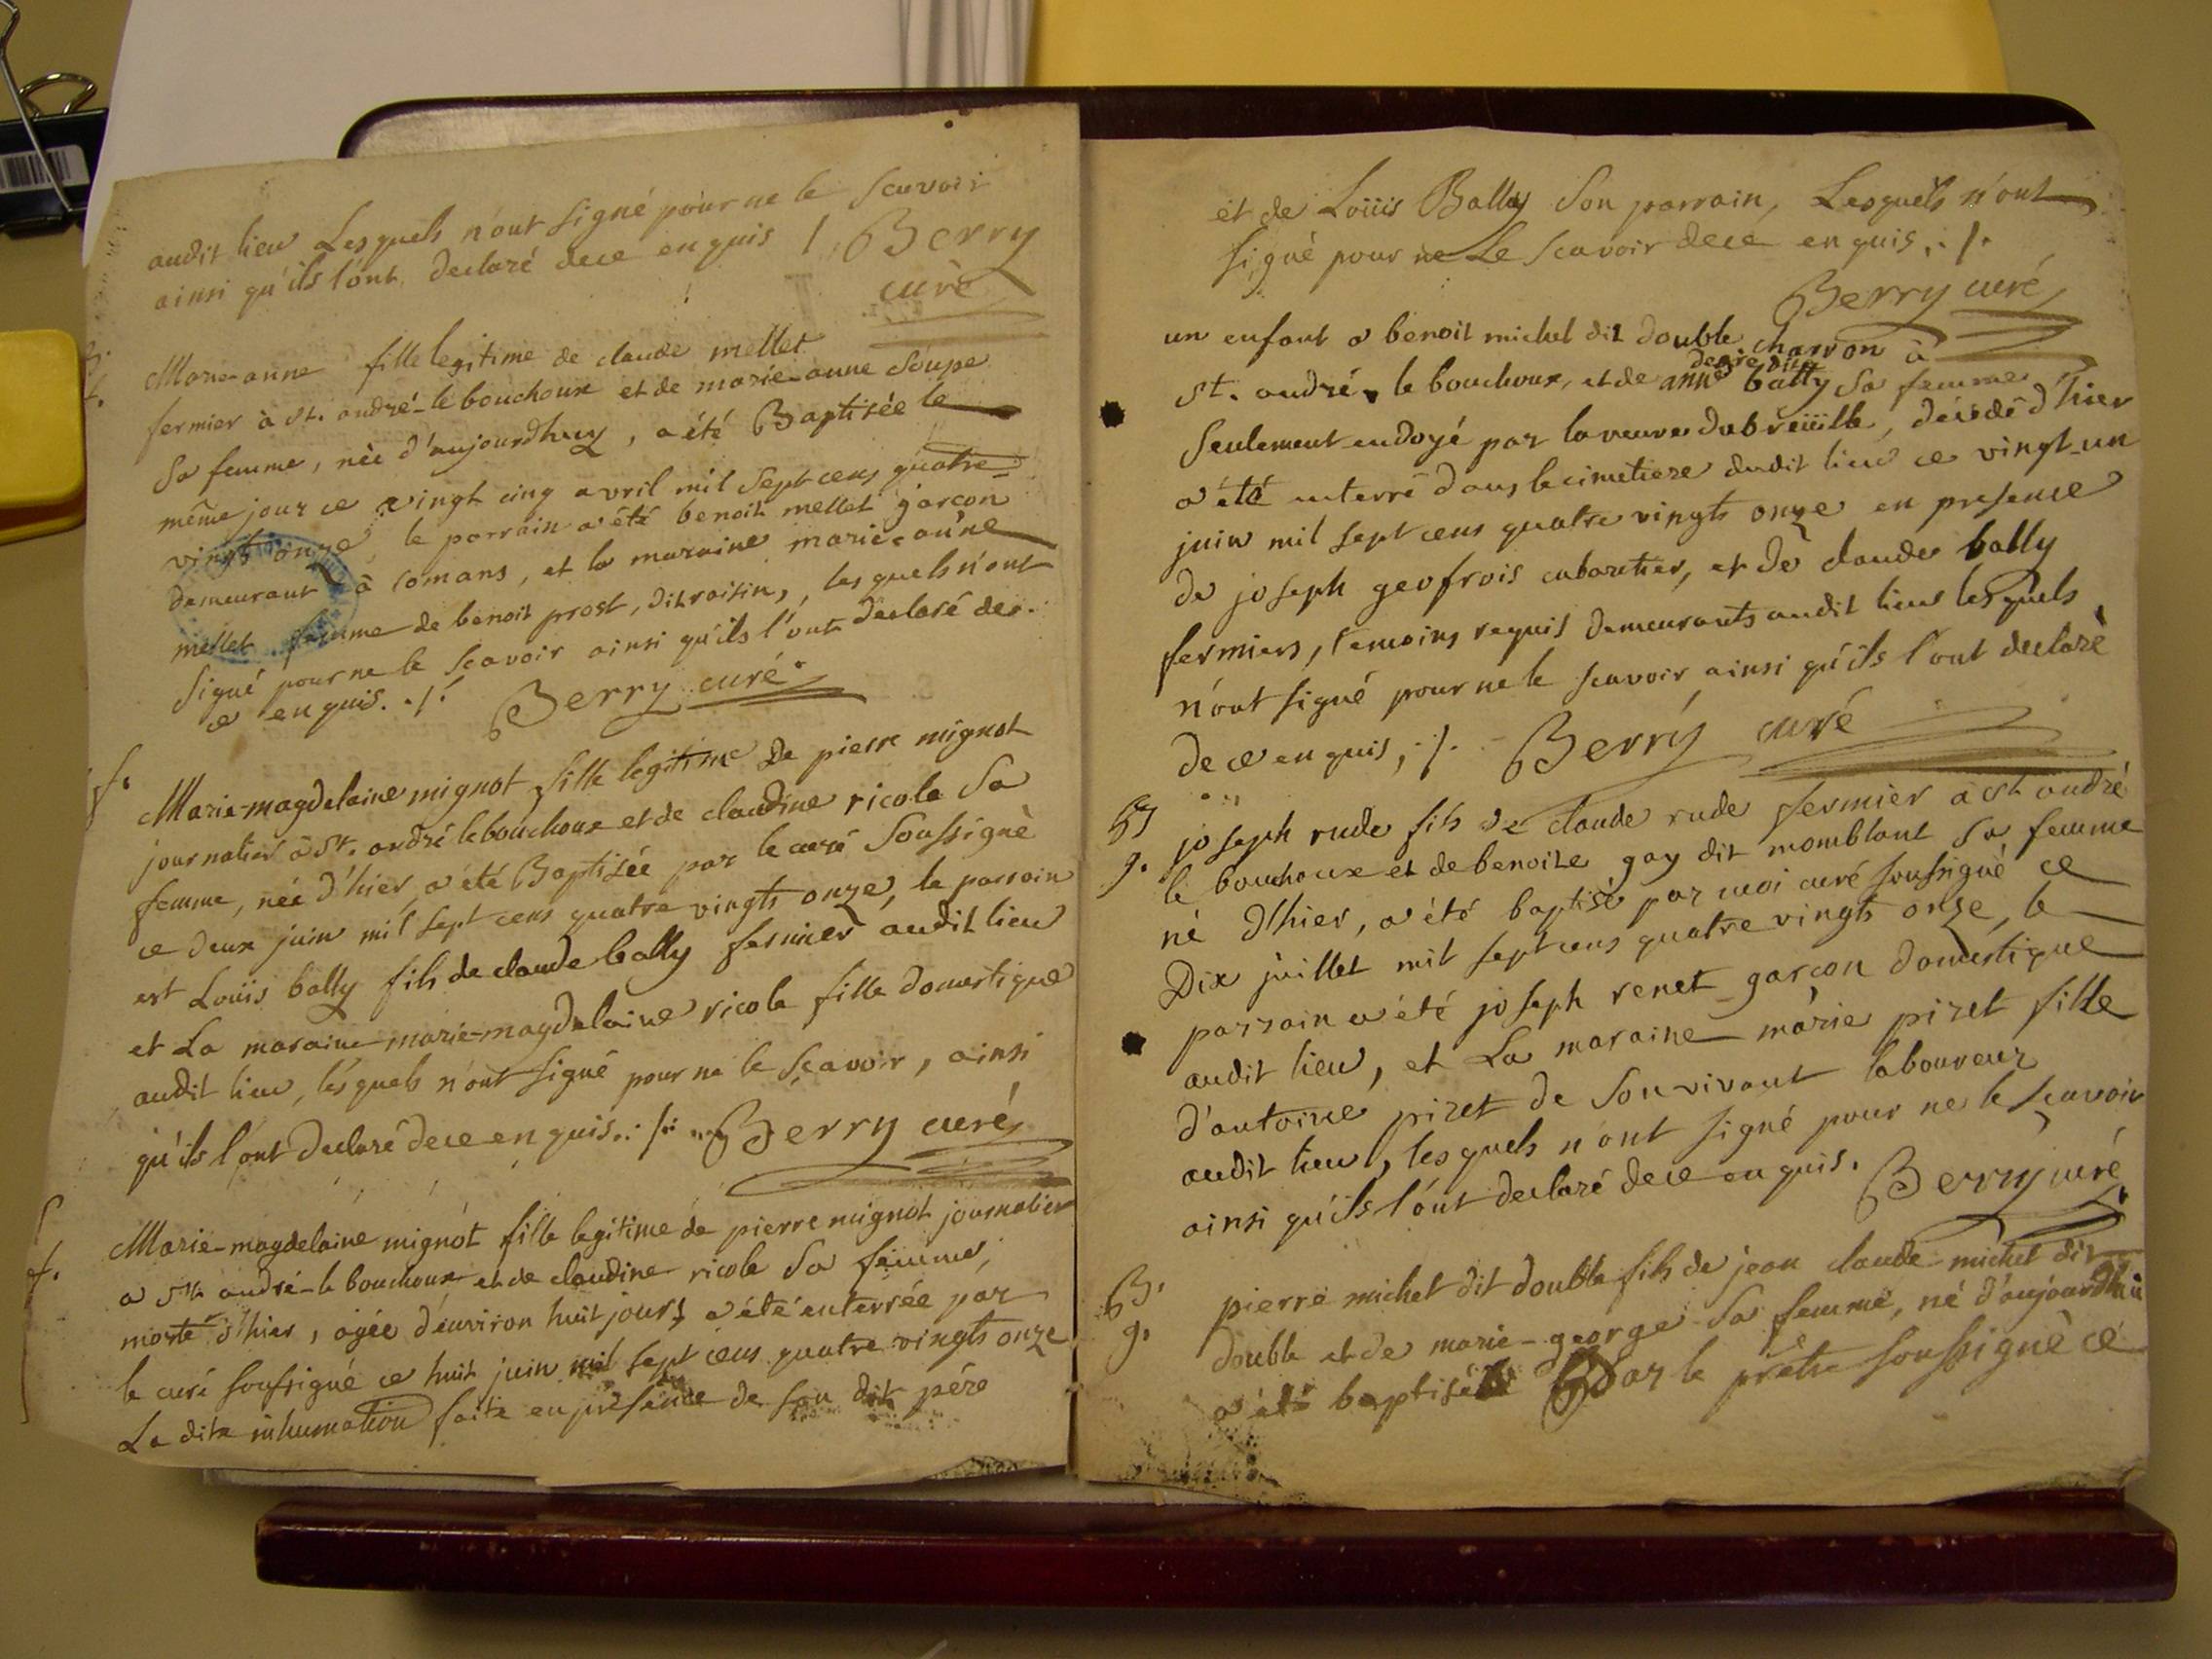 audit lieu Lesquels n'ont signé pour ne le scavoir
ainsi qu'ils l'ont declaré dece enquis /. Berry
curé
Marie-anne fille legitime de claude mellet
fermier à st. andré-le bouchoux et de marie-anne soupe
sa femme, née d'aujourdhuy, a été Baptisée le
même jour ce vingt cinq avril mil sept cens quatre-
vingt onze, le parrain a été benoit mellet garçon
demeurant à romans, et la maraine marie-anne
mellet femme de benoit prost, dit roisin, lesquels n'ont
signé pour ne le scavoir ainsi qu'ils l'ont declaré de
ce enquis. ./. Berry curé
f.
Marie-magdelaine mignot fille legitime De pierre mignot
journalier à St. andré le bouchoux et de claudine ricole sa
femme, née d'hier, a été Baptisée par le curé Soussigné
ce deux juin mil sept cens quatre vingts onze, le parrain
est Loüis bally fils de claude bally fermier audit lieu
et La maraine marie-magdelaine ricole fille domestique
audit lieu, lesquels n'ont signé pour ne le sçavoir, ainsi
qu'ils l'ont declaré dece enquis. ./. Berry curé
f.
Marie-magdelaine mignot fille legitime de pierre mignot journalier
a St. andré-le bouchoux et de claudine ricole sa femme,
morte d'hier, agée d'environ huit jours, a été enterrée par
le curé soussigné ce huit juin mil sept cens quatre vingts onze
La dite inhumation faite en présence de son dit père
et de Loüis Bally Son parrain, Lesquels n'ont
signé pour ne Le scavoir dece enquis, ./.
Berry curé
un enfant a benoit michel dit double charron à
st. andré le bouchoux, et de anne bally sa femme
seulement endoyé par la veuve dubreüille, décédé d'hier
a été enterré dans le cimetiere dudit lieu ce vingt-un
juin mil sept cens quatre vingts onze en presence
de joseph geofrois cabaretier, et de claude bally
fermiers, temoins requis demeurants audit lieu lesquels
n'ont signé pour ne le scavoir ainsi qu'ils l'ont declaré
de ce enquis, ./. Berry curé
B
g. joseph rude fils de claude rude fermier a st andré
le bouchoux et de benoite gay dit momblant sa femme
né d'hier, a été baptisé par moi curé soussigné ce
Dix juillet mil sept cens quatre vingts onze, le
parrain a été joseph renet garçon domestique
audit lieu, et La maraine marie pizet fille
d'antoine pizet de son vivant laboureur
audit lieu, lesquels n'ont signé pour ne le scavoir
ainsi qu'ils l'ont declaré dece enquis. Berry curé
B.
g.
pierre michel dit double fils de jean claude michel dit
double et de marie-george sa femme, né d'aujourdhui
a été baptisé Par le prêtre soussigné ce